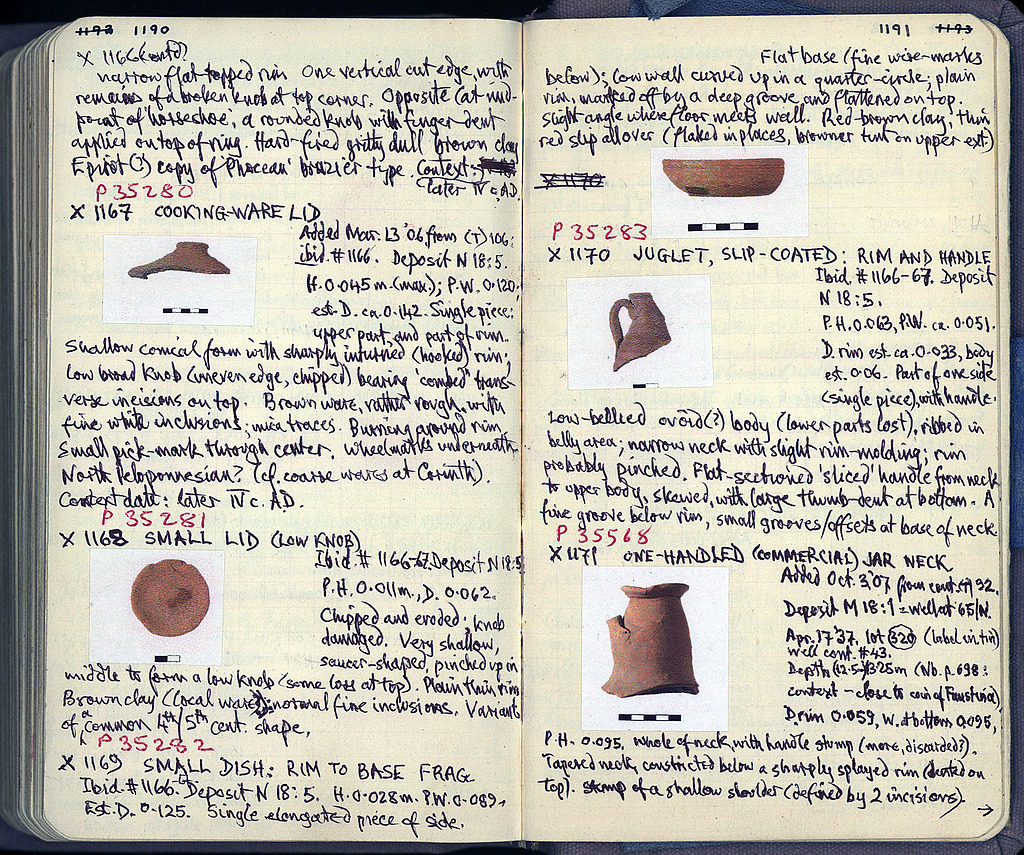 1192 1190
X 1166 (contd)
narrow flat-topped rim. One vertical cut edge, with
remains of a broken knob at top corner. Opposite (at mid-
point of horseshoe), a rounded knob with finger-dent
applied on top of ring. Hard-fired gritty dull brown clay
Epirot(?) copy of 'Phocean' brazier type. Context:
later IV c. A.D.
P 35280
X 1167 COOKING-WARE LID
Added Mar. 13 '06 from (T) 106:
ibid. # 1166. Deposit N 18:5.
H. 0.045 m (max.); P.W. 0.120,
est. D. ca. 0.142. Single piece:
upper part, and part of rim.
Shallow conical form with sharply inturned (hooked) rim;
low broad knob (uneven edge, chipped) bearing 'combed' trans-
verse incisions on top. Brown ware, rather rough, with
fine white inclusions; mica traces. Burning around rim,
small pick-mark through center. Wheelmarks underneath.
North Peloponnesian? (cf. coarse wares at Corinth).
Context date: later IV c. A.D.
P 35281
X 1168 SMALL LID (LOW KNOB)
Ibid. # 1166-67. Deposit N 18:5
P.H. 0.011m., D. 0.062.
Chipped and eroded: knob
damaged. Very shallow,
saucer-shaped, pinched up in
middle to form a low knob (some loss at top). Plain thin rim
Brown clay (local ware?): normal fine inclusions. Variant
of a common 4th/5th cent. shape.
P 35282
X 1169 SMALL DISH: RIM TO BASE FRAG.
Ibid. # 1166-67. Deposit N 18:5. H. 0.028m. P.W. 0.089,
Est. D. 0.125. Single elongated piece of side.
1191 1193
Flat base (fine wire-marks
below); low wall curved up in a quarter-circle; plain
rim, marked off by a deep groove and flattened on top.
Slight angle where floor meets wall. Red-brown clay: thin
red slip all over (flaked in places, browner tint on upper ext.)
X 1170
P 35283
X 1170 JUGLET, SLIP-COATED: RIM AND HANDLE
Ibid. # 1166-67. Deposit
N 18:5.
P.H. 0.063, P.W. ca. 0.051.
D. rim est. ca. 0.033, body
est. 0.06. Part of one side
(single piece), with handle.
Low-bellied ovoid(?) body (lower parts lost), ribbed in
belly area; narrow neck with slight rim-molding; rim
probably pinched. Flat-sectioned 'sliced' handle from neck
to upper body, skewed, with large thumb-dent at bottom. A
fine groove below rim, small grooves/offsets at base of neck.
P 35568
X 1171 ONE-HANDLED (COMMERCIAL) JAR NECK
Added Oct. 3 '07 from cont. 92.
Deposit M 18:1 = well at 65/N.
Apr. 17 '37. lot 320 (label in tin)
well cont. # 43.
Depth (12.5-)13.25m (Nb. p. 698:
context - close to coin of Faustina)
D. rim 0.059, W. at bottom 0.095,
P.H. 0.095. Whole of neck, with handle stump (more, discarded?).
Tapered neck, constricted below a sharply splayed rim (dented on
top). Stump of a shallow shoulder (defined by 2 incisions).
→